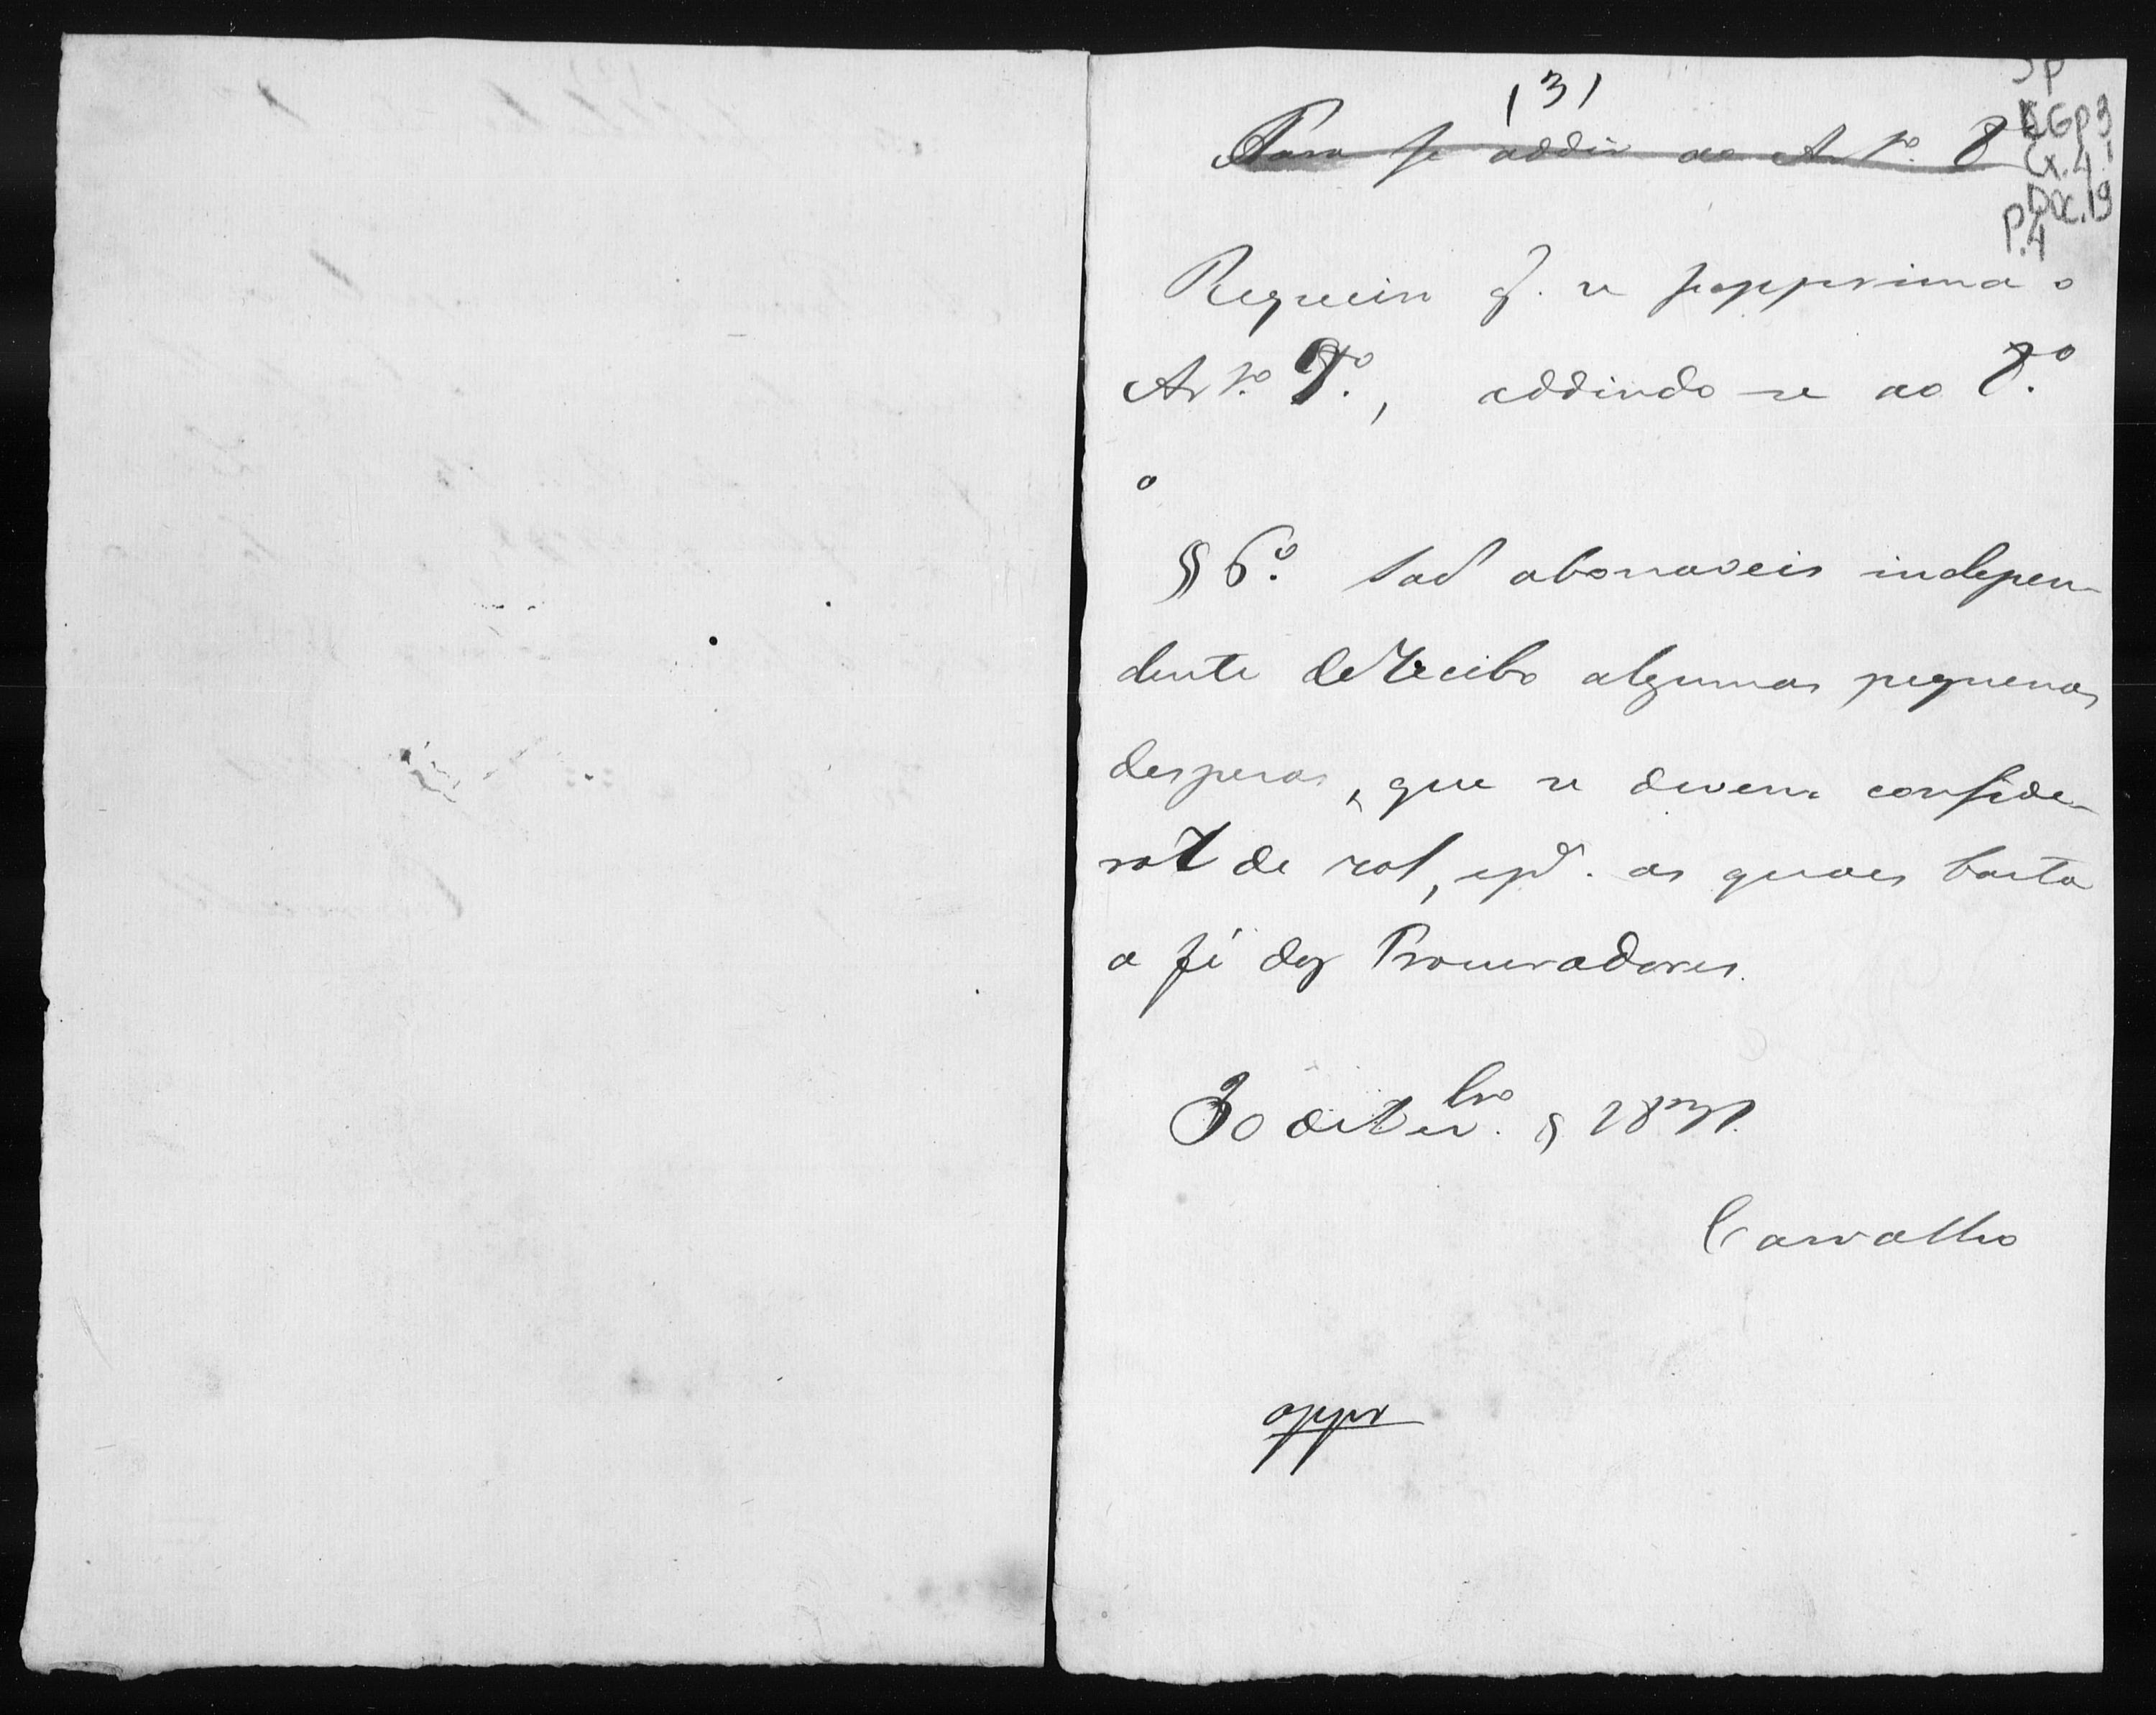 (3)
Para se addir ao Art.º 8º
SP
CGP3
Cx.4.1
Doc.19
P.4
Requeiro q. se supprima o
Art.º 7.º, addindo-se ao 8.º
o
§ 6.º Saõ abonaveis indepen-
dente de recibo algumas pequenas
despesas, que se devem conside-
rar de rol, e pª. as quaes basta
a fé dos Procuradores.
30 de bro. de 1831.
Carvalho
appr